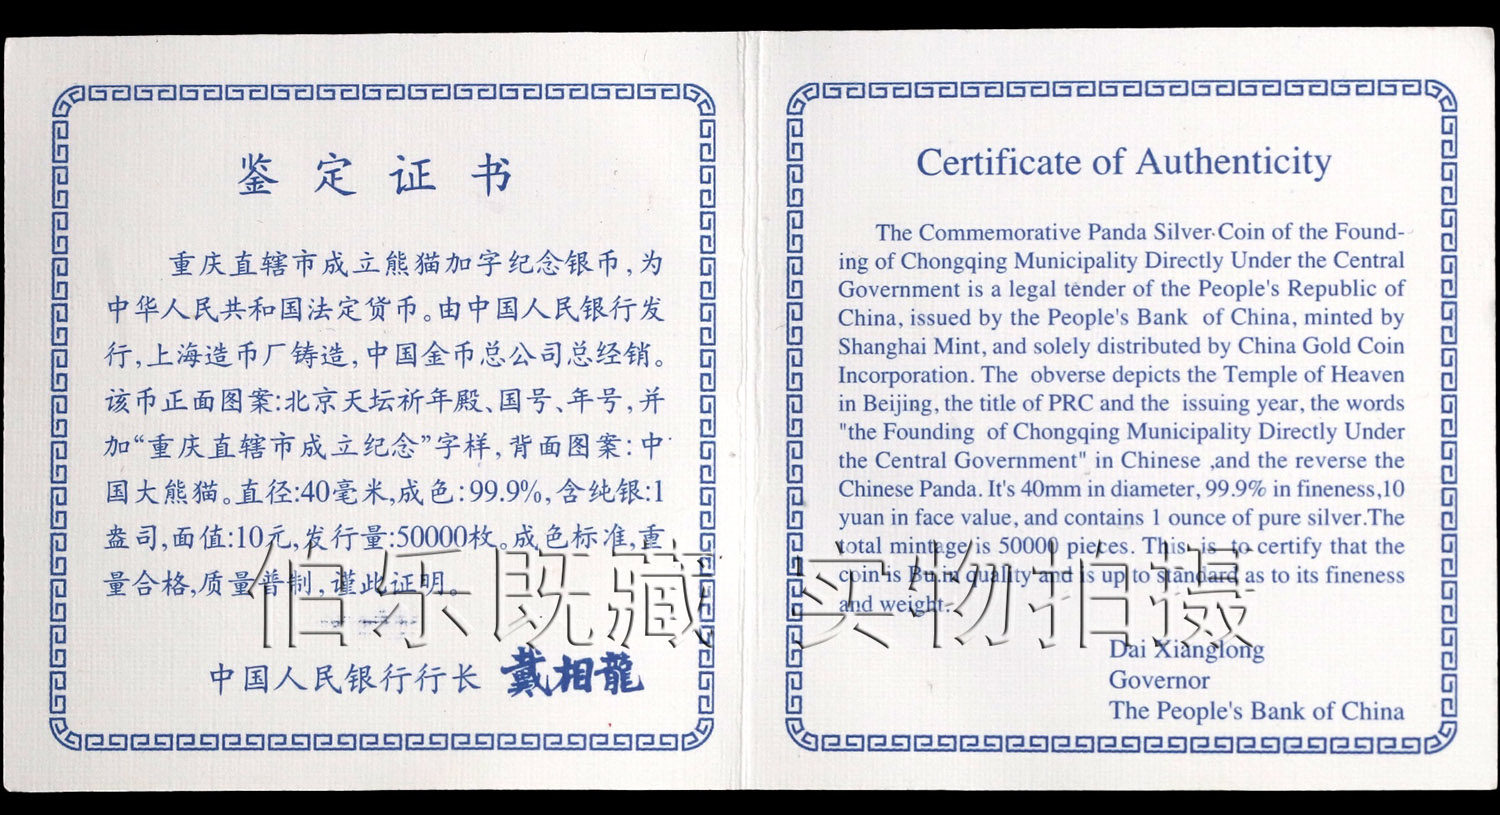 鉴定证书
重庆直辖市成立熊猫加字纪念银币,为
中华人民共和国法定货币。由中国人民银行发
行,上海造币厂铸造,中国金币总公司总经销。
该币正面图案:北京天坛祈年殿、国号、年号,并
加“重庆直辖市成立纪念”字样,背面图案:中
国大熊猫。直径:40毫米,成色:99.9%,含纯银:1
盎司,面值:10元,发行量:50000枚。成色标准,重
量合格,质量普制,谨此证明。
中国人民银行行长 戴相龍
Certificate of Authenticity
The Commemorative Panda Silver Coin of the Found-
ing of Chongqing Municipality Directly Under the Central
Government is a legal tender of the People's Republic of
China, issued by the People's Bank of China, minted by
Shanghai Mint, and solely distributed by China Gold Coin
Incorporation. The obverse depicts the Temple of Heaven
in Beijing, the title of PRC and the issuing year, the words
"the Founding of Chongqing Municipality Directly Under
the Central Government" in Chinese ,and the reverse the
Chinese Panda. It's 40mm in diameter, 99.9% in fineness,10
yuan in face value, and contains 1 ounce of pure silver.The
total mintage is 50000 pieces. This is to certify that the
coin is Bu.in quality and is up to standard as to its fineness
and weight.
Dai Xianglong
Governor
The People's Bank of China
伯乐既藏 实物拍摄